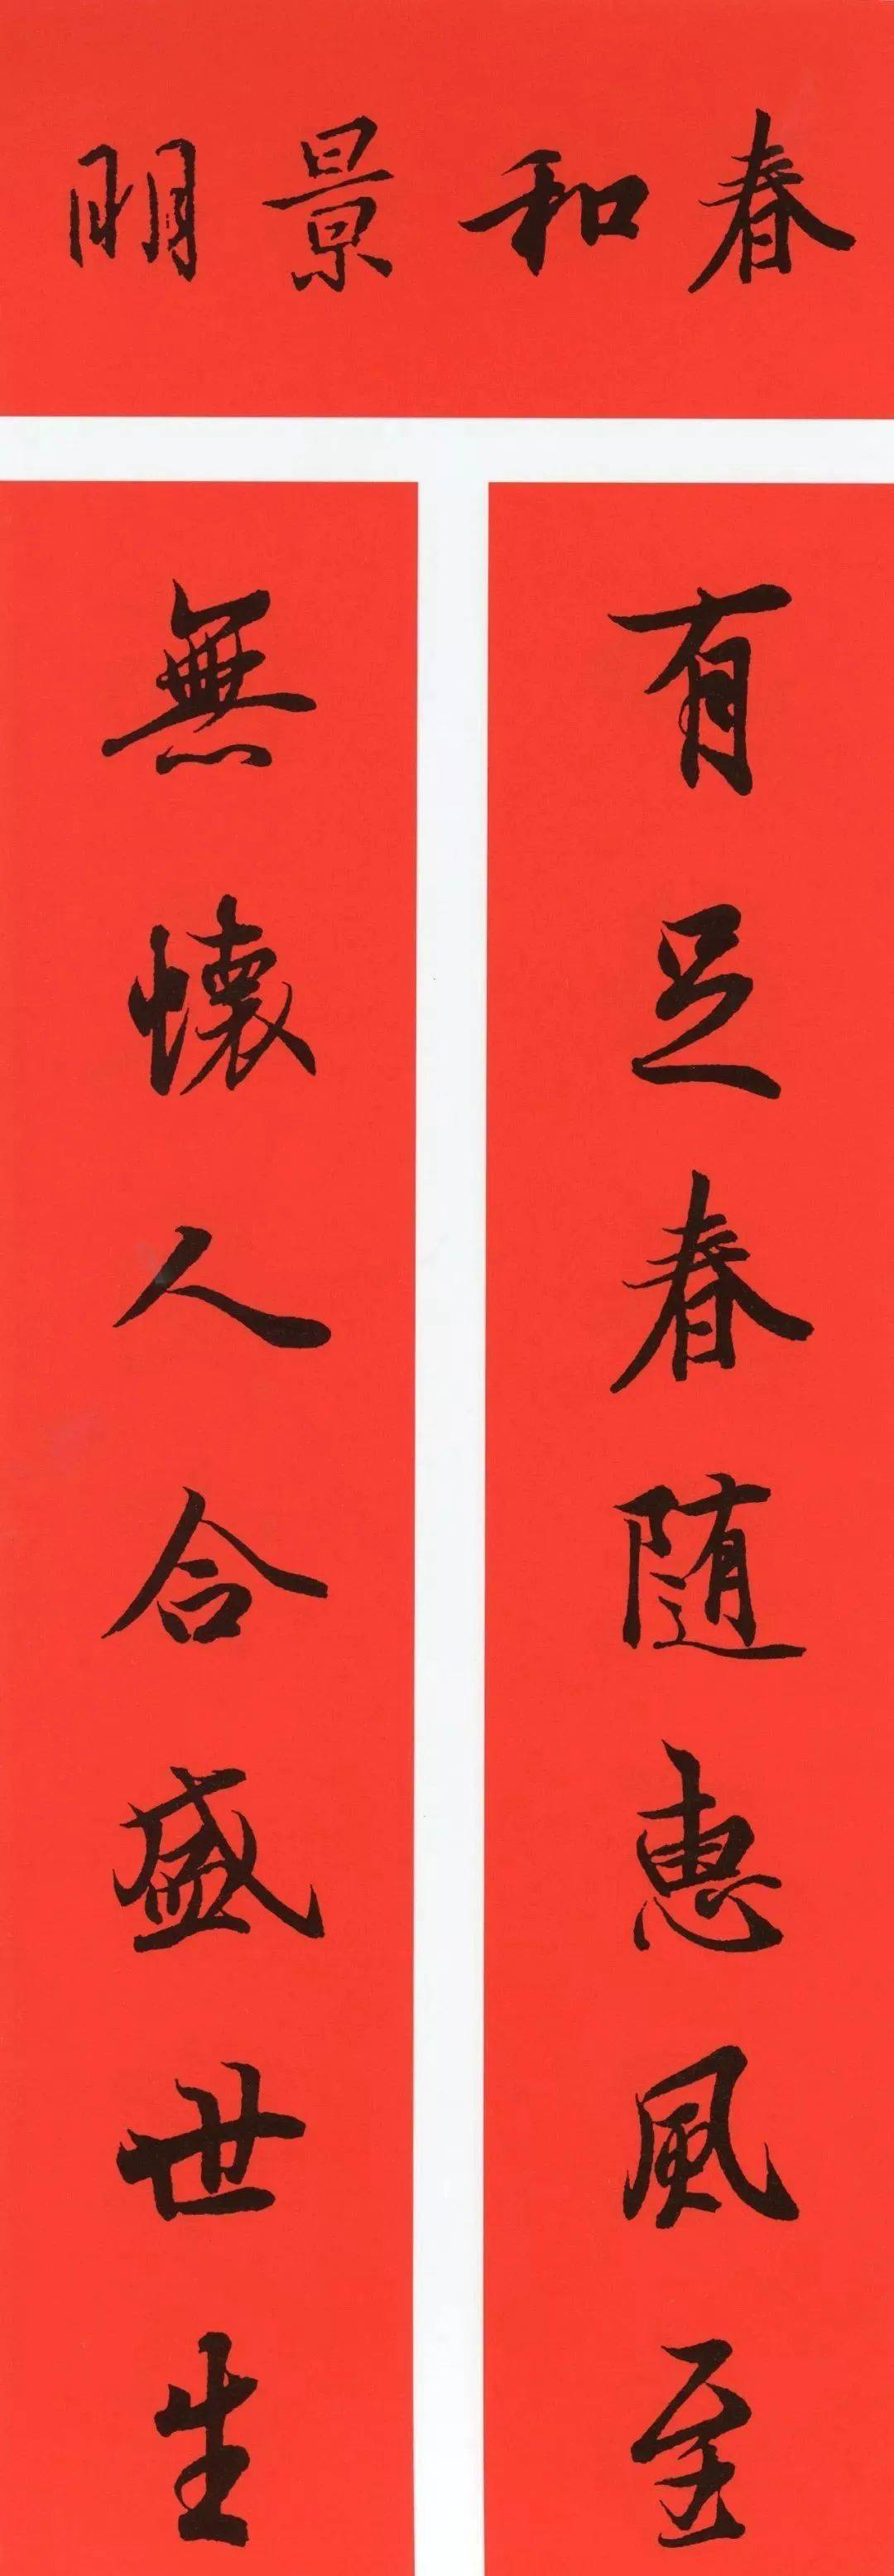 春和景明
有足春随惠風至
無懷人合盛世生